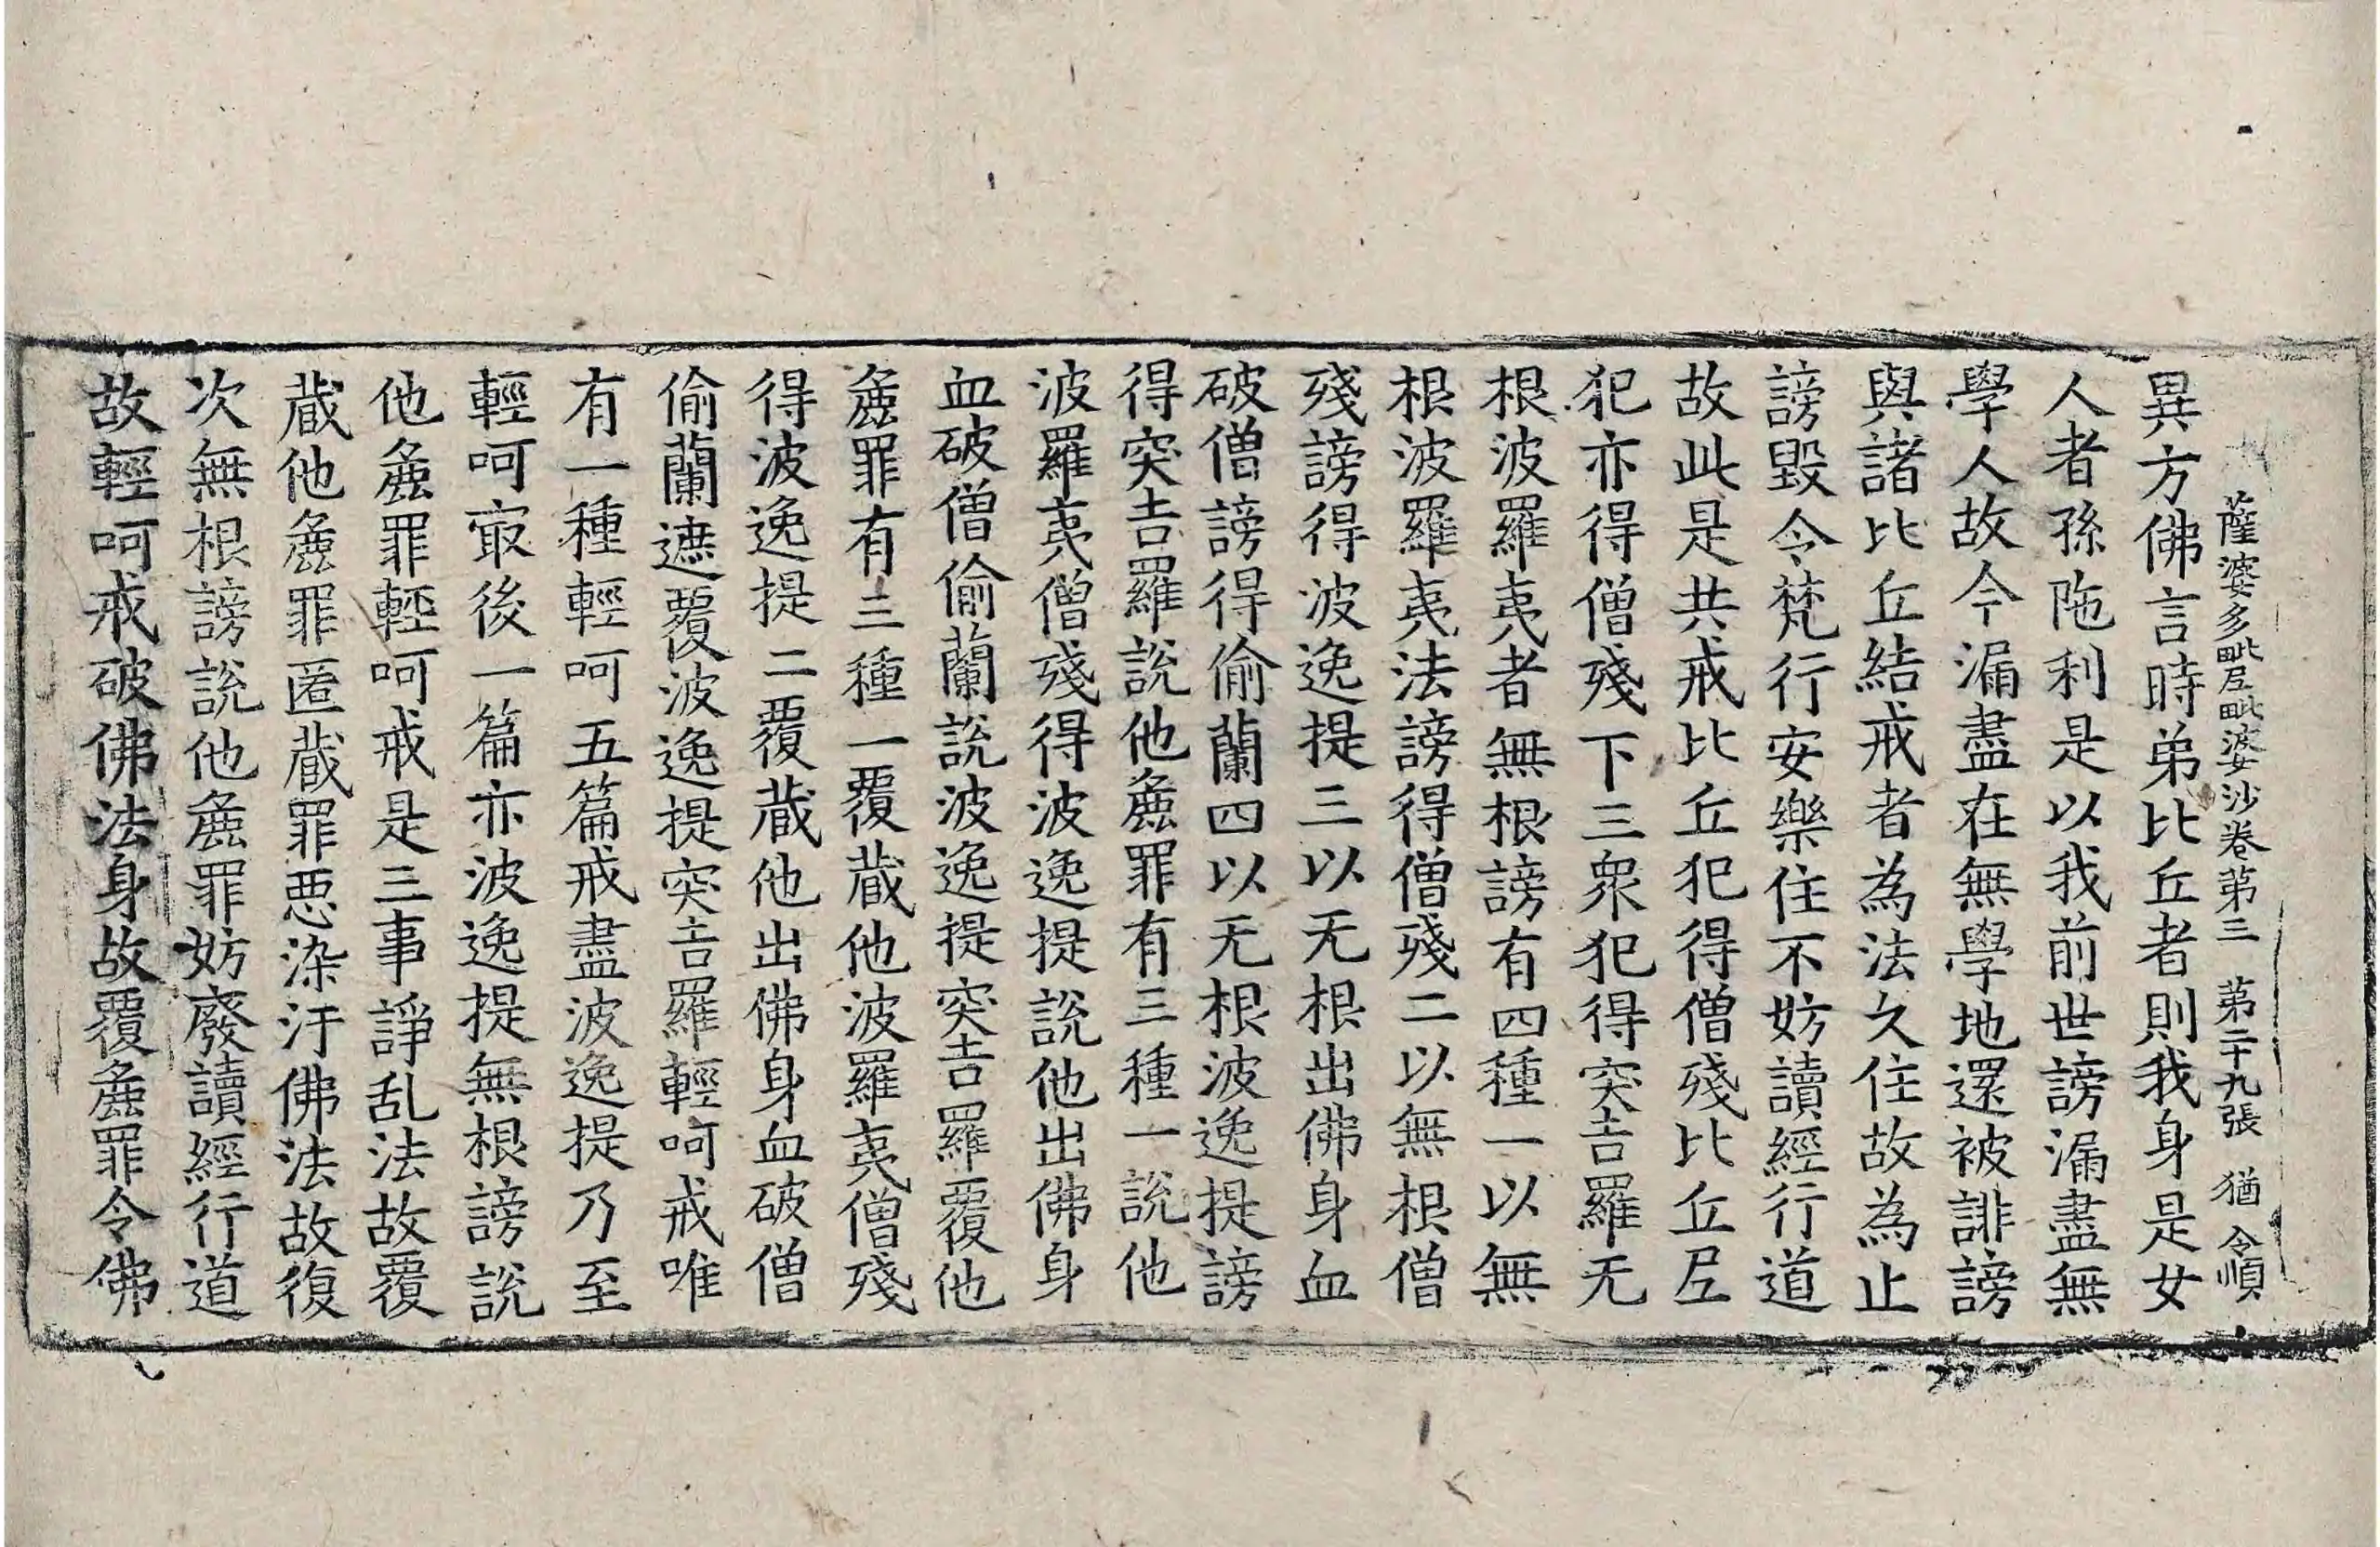 薩婆多毗尼毗婆沙卷第三 第二十九張 猶 令順
異方佛言時弟比丘者則我身是女
人者孫陁利是以我前世謗漏盡無
學人故今漏盡在無學地還被誹謗
與諸比丘結戒者為法久住故為止
謗毀令梵行安樂住不妨讀經行道
故此是共戒比丘犯得僧殘比丘尼
犯亦得僧殘下三衆犯得突吉羅无
根波羅夷者無根謗有四種一以無
根波羅夷法謗得僧殘二以無根僧
殘謗得波逸提三以无根出佛身血
破僧謗得偷蘭四以无根波逸提謗
得突吉羅說他麁罪有三種一說他
波羅夷僧殘得波逸提說他出佛身
血破僧偷蘭說波逸提突吉羅覆他
麁罪有三種一覆蔵他波羅夷僧殘
得波逸提二覆蔵他出佛身血破僧
偷蘭遮覆波逸提突吉羅輕呵戒唯
有一種輕呵五篇戒盡波逸提乃至
輕呵㝡後一篇亦波逸提無根謗說
他麁罪輕呵戒是三事諍乱法故覆
蔵他麁罪匿蔵罪惡染汙佛法故復
次無根謗說他麁罪妨廢讀經行道
故輕呵戒破佛法身故覆麁罪令佛